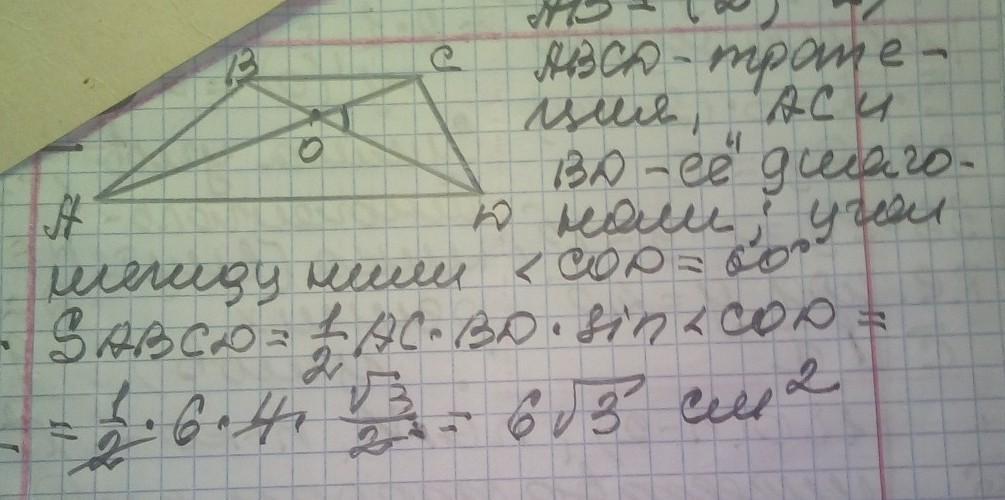 B
C
O
A
D
ABCD - трапе-
ция, AC и
BD - её диаго-
нали; угол
между ними < COD = 60°
SABCD = 1/2 AC · BD · sin < COD =
= 1/2 · 6 · 4 · √3/2 = 6√3 см²